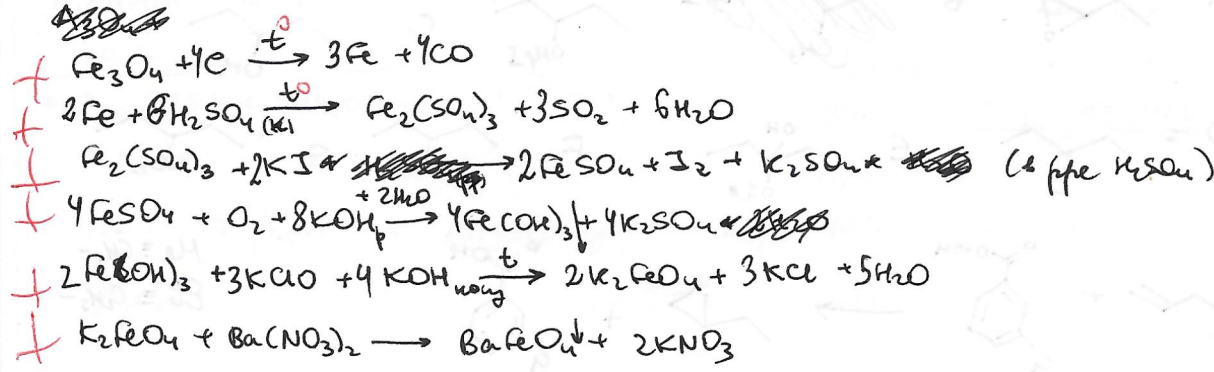 Fe₃O₄ + 4C t° → 3Fe + 4CO
2Fe + 6H₂SO₄ (к) t° → Fe₂(SO₄)₃ + 3SO₂ + 6H₂O
Fe₂(SO₄)₃ + 2KI → 2FeSO₄ + I₂ + K₂SO₄ (в р-ре H₂SO₄)
4FeSO₄ + O₂ + 8KOH р + 2H₂O → 4Fe(OH)₃↓ + 4K₂SO₄
2Fe(OH)₃ + 3KClO + 4KOH конц t → 2K₂FeO₄ + 3KCl + 5H₂O
K₂FeO₄ + Ba(NO₃)₂ → BaFeO₄↓ + 2KNO₃